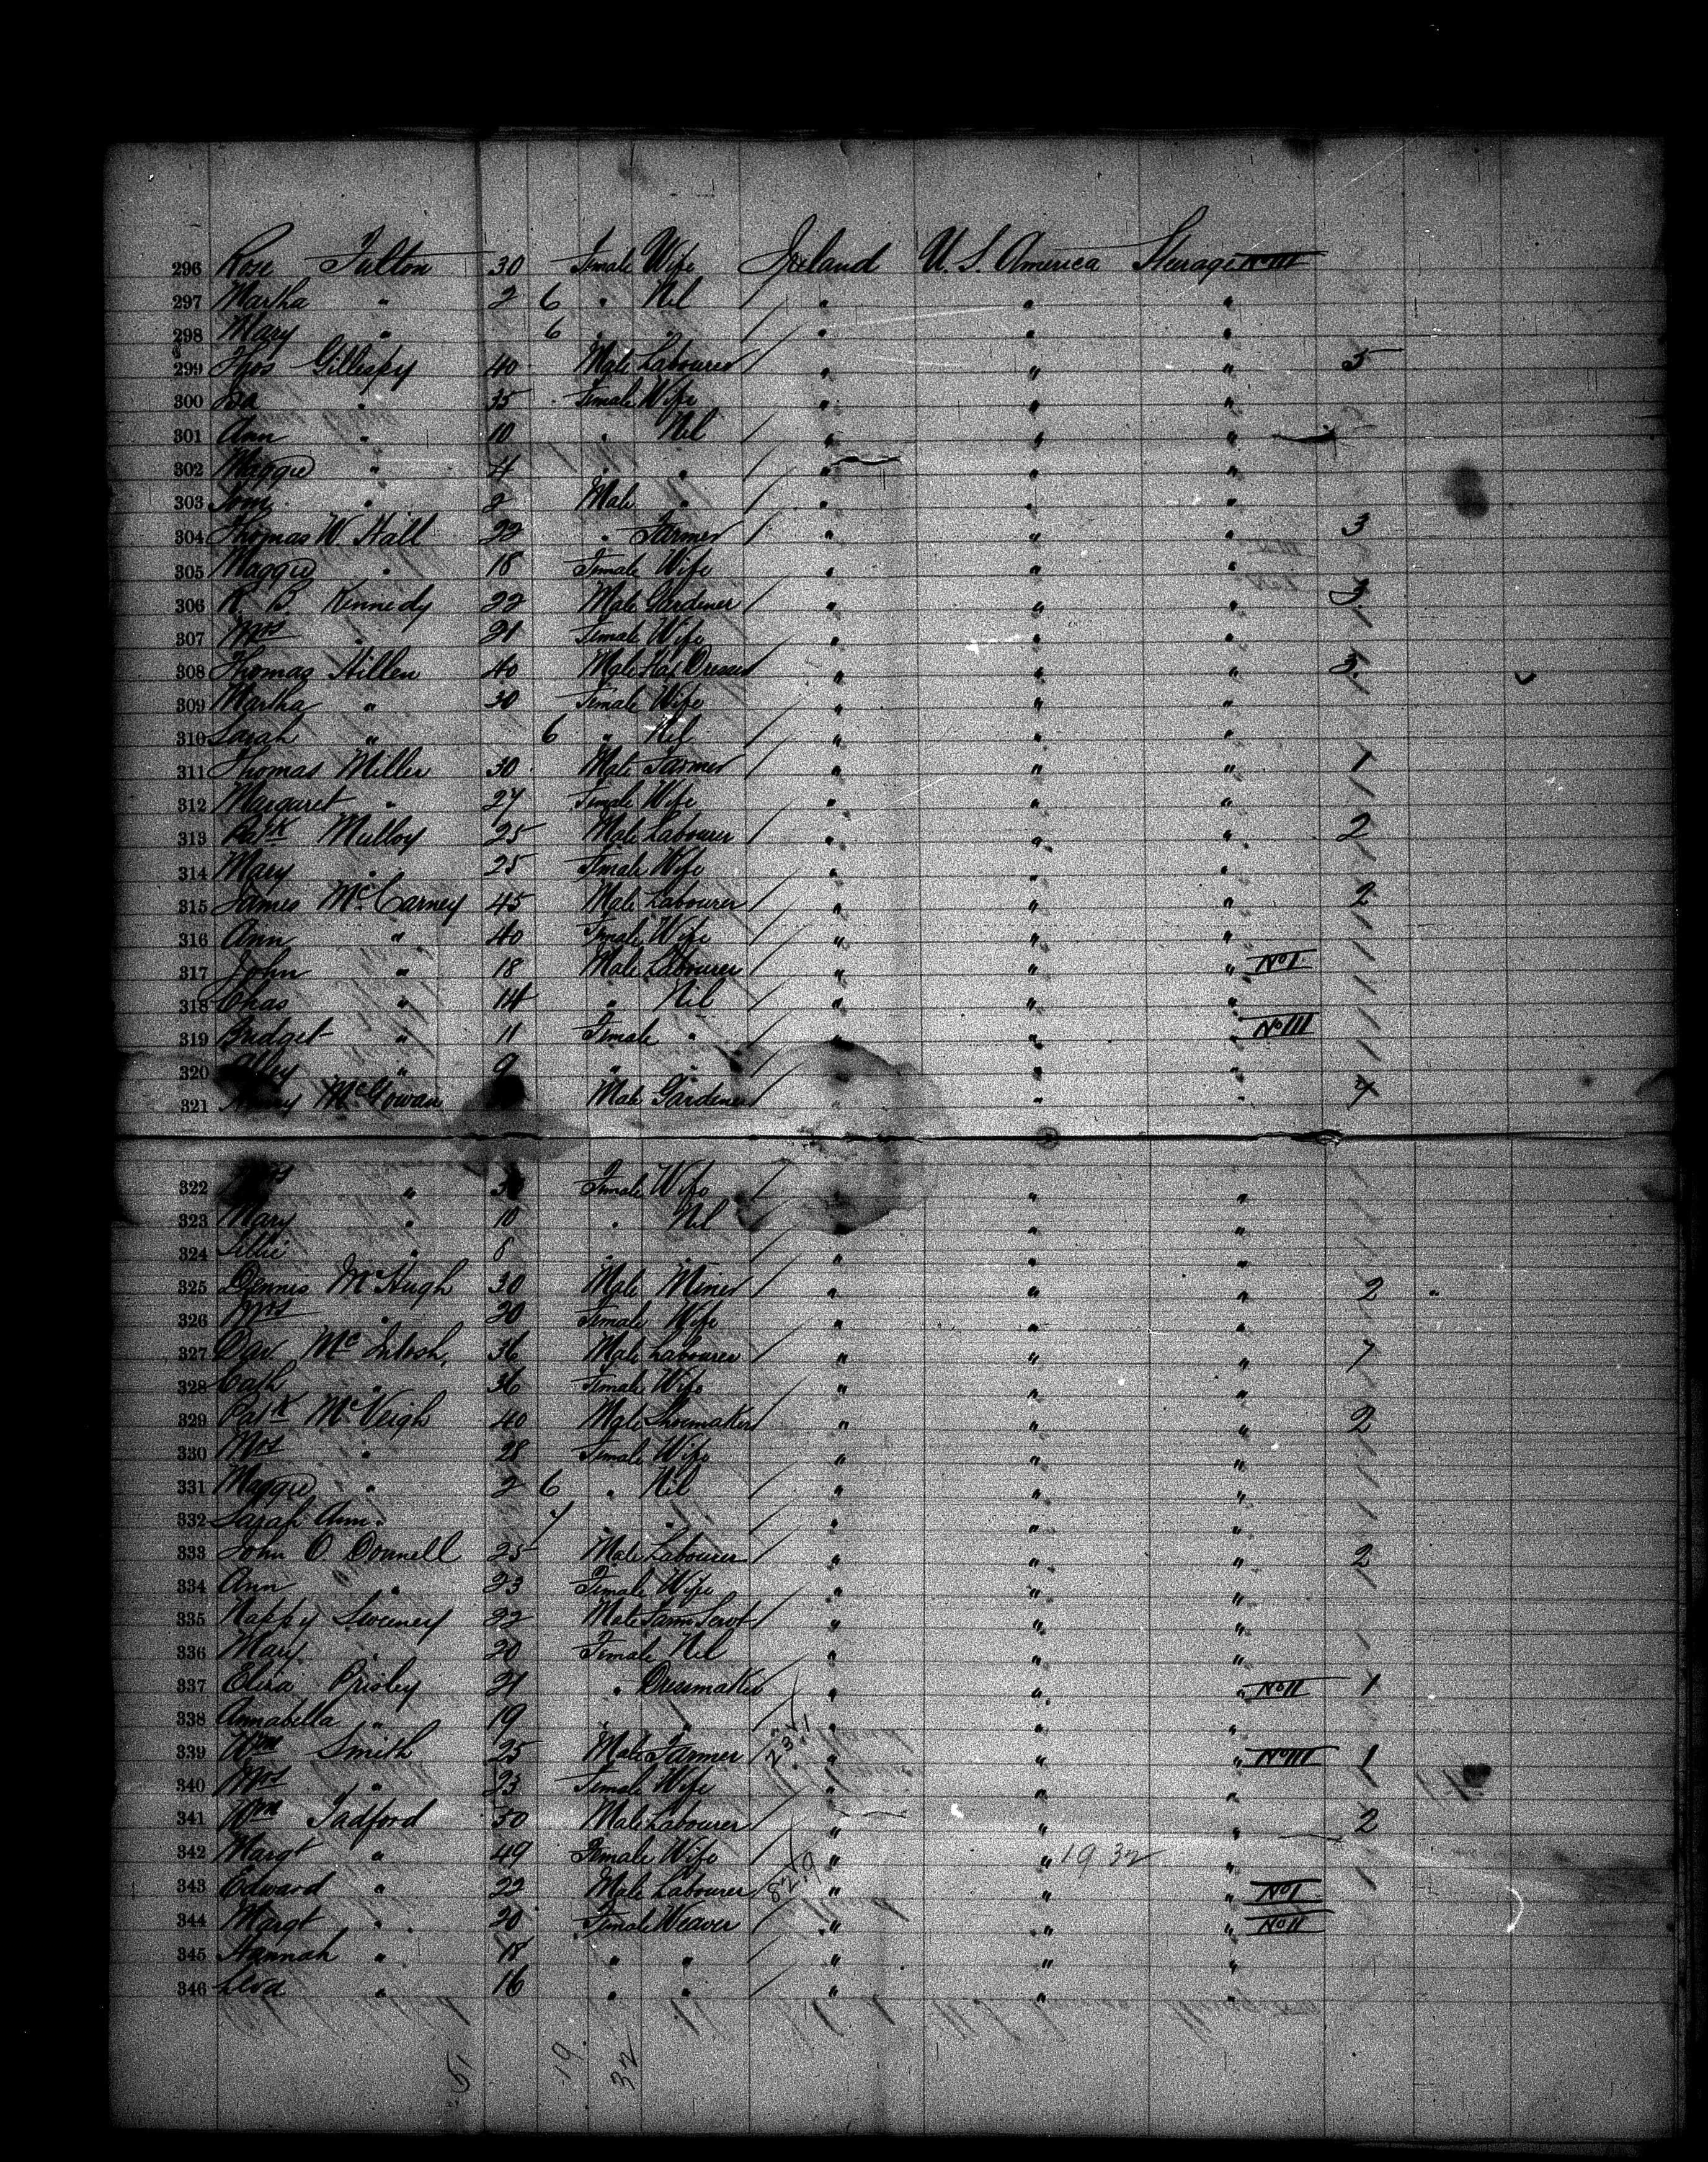 296 Rose Fulton 30 Female Wife Ireland U. S. America Sturage No III
297 Martha " 2 6 " Nil / " " "
298 Mary " 6 " " / " " "
299 Thos Gillespy 40 Male Labourer / " " " 5
300 " 35 Female Wife " " "
301 Ann " 10 " Nil / " " "
302 Maggie " 4 " " / " " "
303 Tom " 2 Male " / " " "
304 Thomas W. Hall 22 " Farmer / " " " 3
305 Maggie " 18 Female Wife " " "
306 R. B. Kennedy 22 Male Gardener / " " " 3
307 Mrs " 21 Female Wife " " "
308 Thomas Hillen 40 Male Flax Dresser " " " 3
309 Martha " 30 Female Wife " " "
310 Sarah " 6 " Nil / " " "
311 Thomas Miller 30 Male Farmer / " " " 1
312 Margaret " 27 Female Wife " " "
313 Patk Mulloy 25 Male Labourer / " " " 2
314 Mary " 25 Female Wife " " "
315 James McCarney 45 Male Labourer / " " " 2
316 Ann " 40 Female Wife / " " "
317 John " 18 Male Labourer / " " " No I.
318 Chas " 14 " Nil / " " "
319 Bridget " 11 Female " / " " " No III
320 " 9 " " / " " "
321 McGowan Male Gardener " " " 4
322 " Female Wife / " " "
323 Mary " 10 " Nil " " "
324 Lillie " 8 " " / " " "
325 Dennis McHugh 30 Male Miner / " " " 2 "
326 Mrs " 20 Female Wife " " "
327 Dav McIntosh, 36 Male Labourer / " " " 7
328 Cath " 36 Female Wife " " "
329 Patk McVeigh 40 Male Shoemaker / " " " 2
330 Mrs " 28 Female Wife " " "
331 Maggie " 2 6 " Nil / " " "
332 Sarah Ann " 7 " " / " " "
333 John O Donnell 25 Male Labourer / " " " 2
334 Ann " 23 Female Wife " " "
335 Nappy Sweeney 22 Male Farm Servt / " " "
336 Mary " 20 Female Nil " " "
337 Eliza Prisley 21 " Dressmaker " " " No II 1
338 Annabella " 19 " " " " "
339 Wm Smith 25 Male Farmer / " " " No III 1
340 Mrs " 23 Female Wife " " "
341 Wm Tadford 50 Male Labourer / " " " 2
342 Margt " 49 Female Wife / " " 19 32 "
343 Edward " 22 Male Labourer " " " No I
344 Margt " 20 Female Weaver / " " " No II
345 Hannah " 18 " " / " " "
346 " 16 " " / " " "
51 19 32